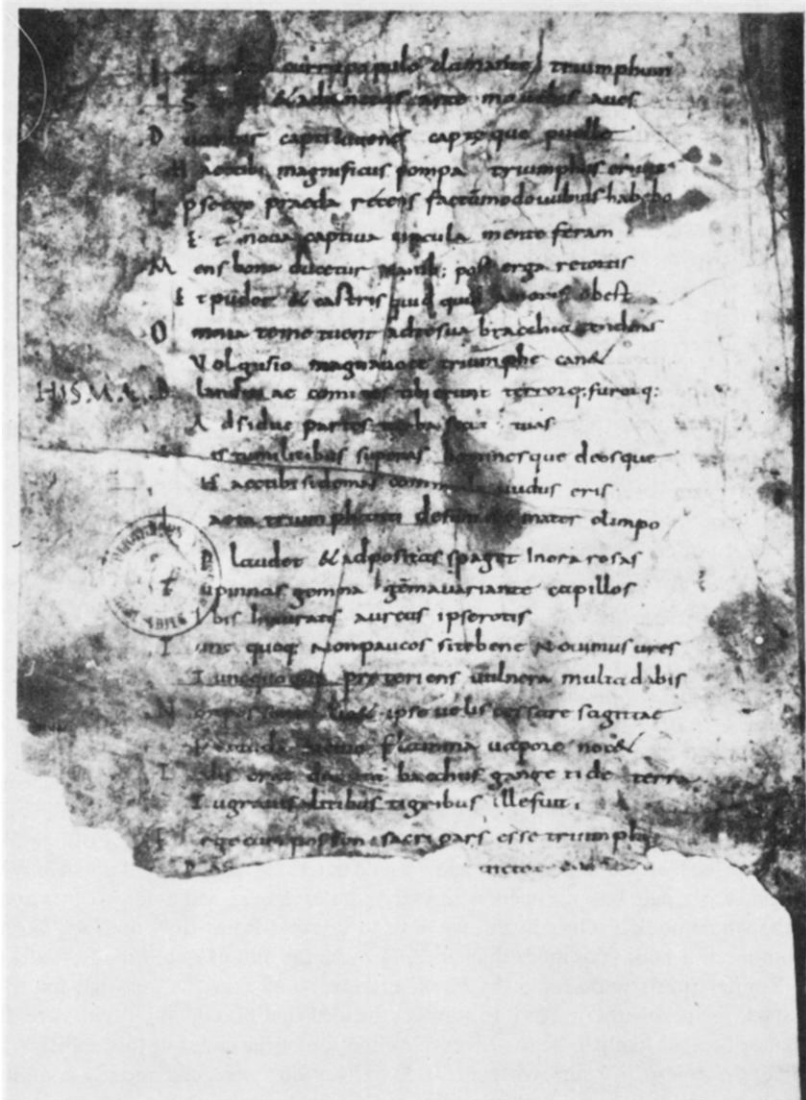 curru populo clamante triumphum
&adiunctas arte mouebis aues
D captiiuuenes captęque puellę
H aectibi magnificus pompa tryumphus erit
I pseego praeda recens factummodouulnus habebo
E t noua captiua uincula mente feram
M ens bona ducetur manib; post erga retortis
E t pudor & castris quid quid amoris obest
O mnia teme tuent adtesua bracchia tendens
V olgusio magnauoce triumphe can&
HIS.M.A. B landitiae comites tibierunt terrorq; furorq;
A dsidue partes turba secuta tuas
istumilitibus superas hominesque deosque
H aectibisidemas commoda nudus eris
aeta triumphanti desummo mater olimpo
P laudet &adpositas spaget Inora rosas
t upinnas gemma gēmauariante capillos
I bis Inauratis aureus ipserotis
T unc quoq; Nonpaucos sitebene Nouimusures
T uncquoque pretoriens uulnera multa dabis
N ipse uelis cessare sagittae
flamma uapore noc&
T alis erat bacchus gange tide terra
T ugrauisalitibus tigribus illefuit.
E rgocum possim sacri pars esse triumphi